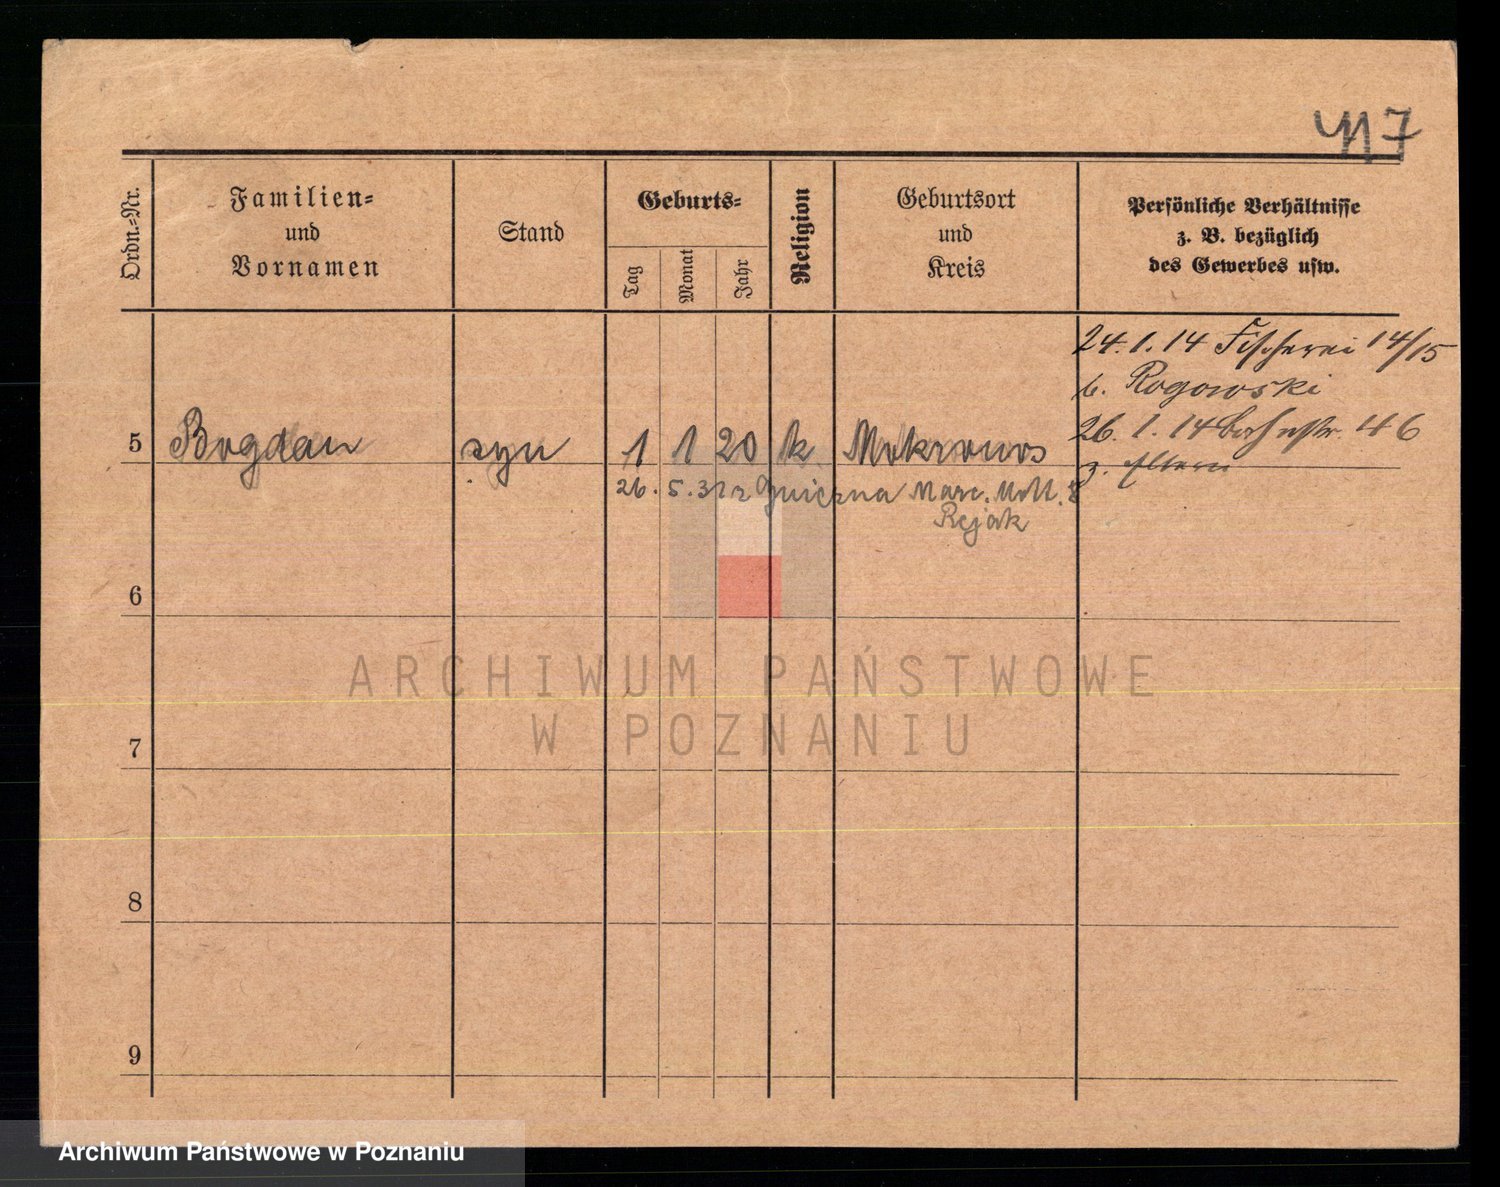 417
Ordn.-Nr.
Familien-
und
Vornamen
Stand
Geburts-
Tag
Monat
Jahr
Religion
Geburtsort
und
Kreis
Persönliche Verhältnisse
z. B. bezüglich
des Gewerbes usw.
24. 1. 14 Fischerei 14/15
b. Rogowski
26. 1. 14 46
z. Eltern
5 Bogdan syn 1 1 20 k Mokronos
26. 5. 31 z Gniezna Marc. Mott. 8
Rejak
6
7
8
9
ARCHIWUM PAŃSTWOWE
W POZNANIU
Archiwum Państwowe w Poznaniu